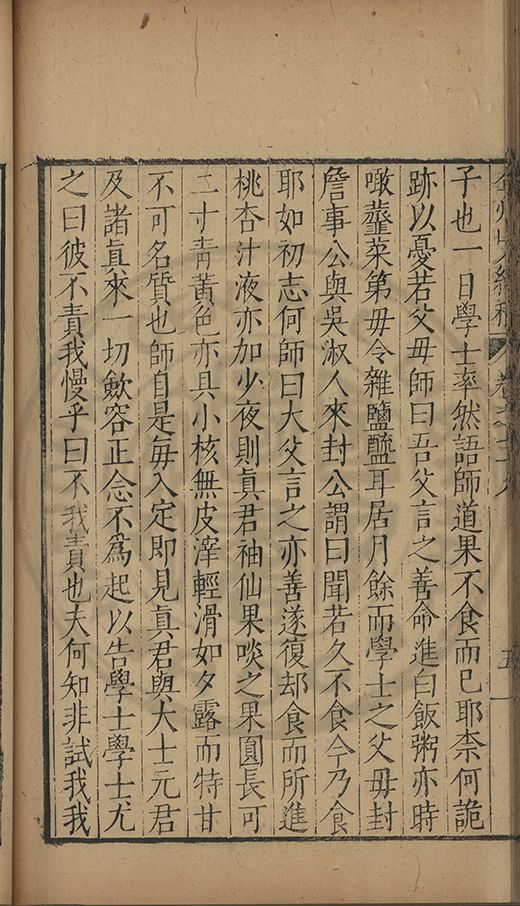 弇州山人續稿 卷之七十八 五
子也一日學士率然語師道果不食而已耶柰何詭
跡以憂若父毋師曰吾父言之善命進白飯粥亦時
噉虀菜第毋令雜鹽醯耳居月餘而學士之父毋封
詹事公與吳淑人來封公謂曰聞若久不食今乃食
耶如初志何師曰大父言之亦善遂復却食而所進
桃杏汁液亦加少夜則眞君袖仙果啖之果圓長可
二寸靑黃色亦具小核無皮滓輕滑如夕露而特甘
不可名質也師自是每入定即見眞君與大士元君
及諸眞來一切歛容正念不爲起以告學士學士尤
之曰彼不責我慢乎曰不我責也夫何知非試我我